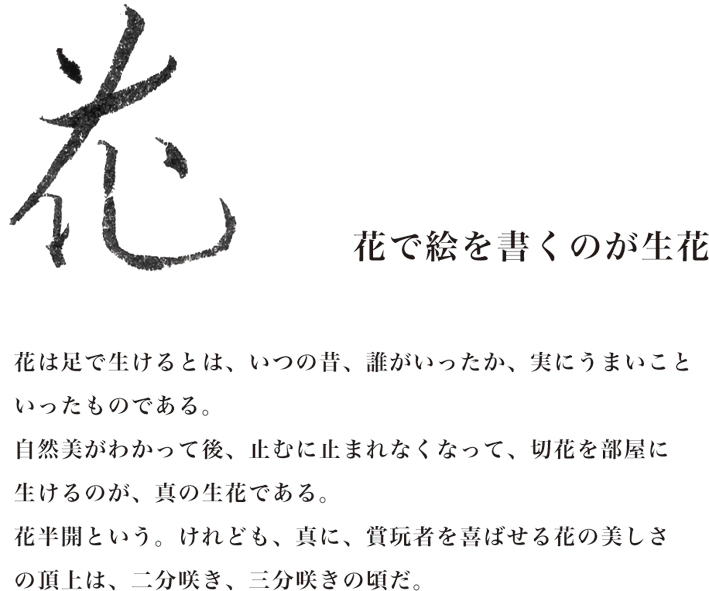 花
花で絵を書くのが生花
花は足で生けるとは、いつの昔、誰がいったか、実にうまいこと
いったものである。
自然美がわかって後、止むに止まれなくなって、切花を部屋に
生けるのが、真の生花である。
花半開という。けれども、真に、賞玩者を喜ばせる花の美しさ
の頂上は、二分咲き、三分咲きの頃だ。